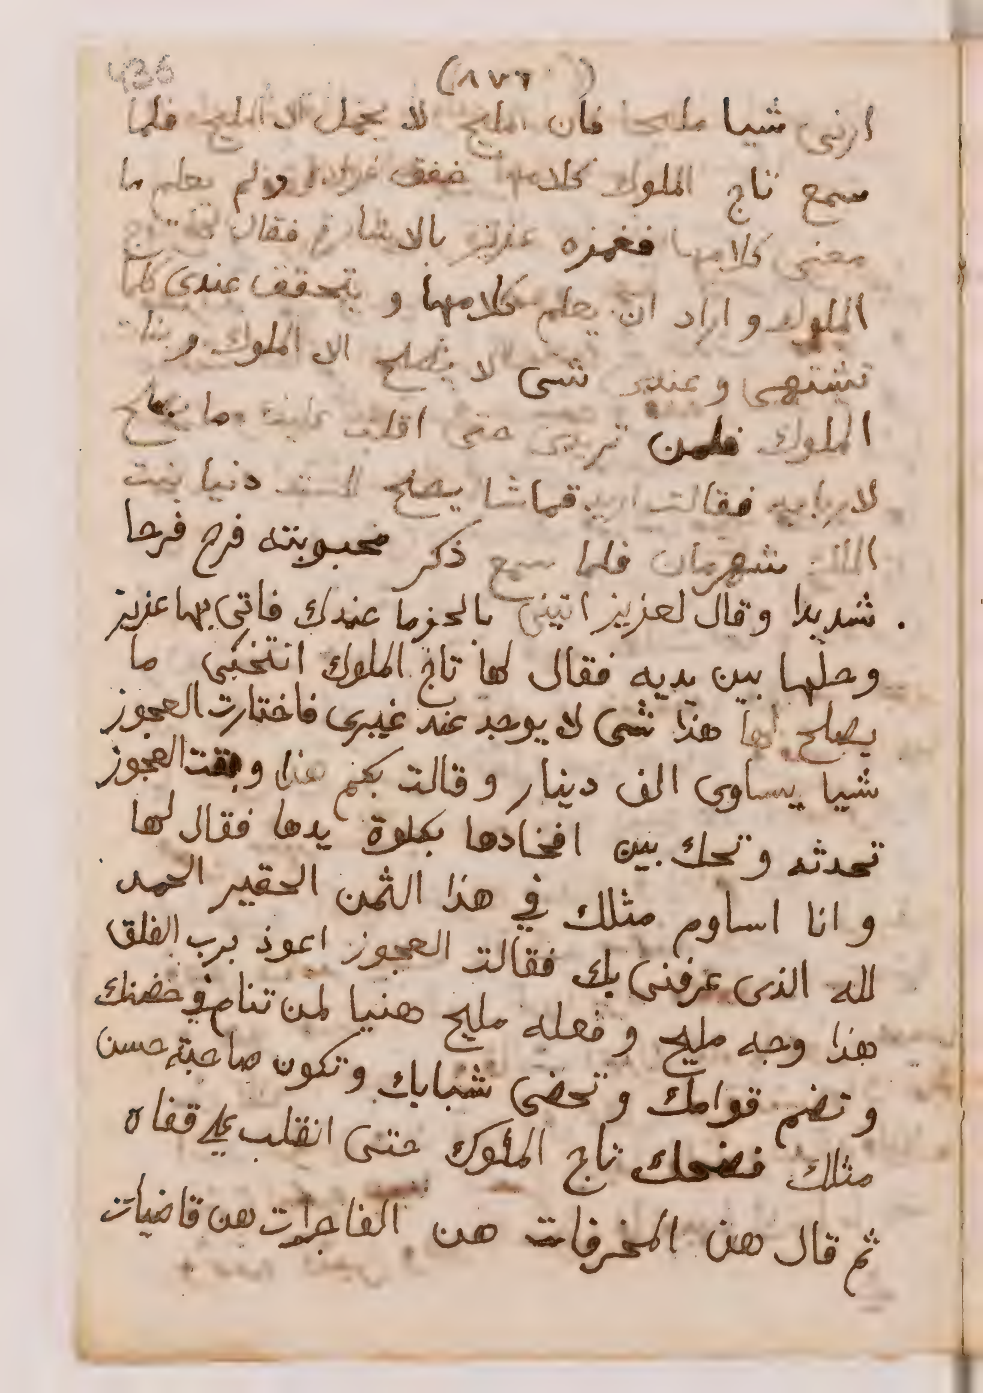 436
(٨٧٦)
ارنى شيا مليحا فان المليح لا يحمل الا المليح فلما
سمع تاج الملوك كلامها خفق فواده ولم يعلم ما
معنى كلامها فغمزه عزيز بالاشاره فقال تاج
الملوك و اراد ان يعلم كلامها و يتحقف عندى كلما
تشتهى و عندى شى لا يصلح الا الملوك و بنات
الملوك فلمن تريدى حتى اقلب عليك ما يصلح
لاربابه فقالت اريد قماشا يصلح للست دنيا بنت
الملك شهرمان فلما سمع ذكر محبوبته فرح فرحا
شديدا وقال لعزيز اتينى بالحزما عندك فاتى بها عزيز
وحلها بين يديه فقال لها تاج الملوك انتخبى ما
يصلح لها هذا شى لا يوجد عند غيرى فاختارت العجوز
شيا يساوى الف دينار و قالت بكم هذا و بقت العجوز
تحدثه و تحك بين افخادها بكلوة يدها فقال لها
و انا اساوم مثلك في هذا الثمن الحقير الحمد
لله الذى عرفنى بك فقالت العجوز اعوذ برب الفلق
هذا وجه مليح و فعله مليح هنيا لمن تنام في حضنك
و تضم قوامك و تحضى شبابك و تكون صاحبة حسن
مثلك فضحك تاج الملوك حتى انقلب على قفاه
ثم قال هن المخرفات هن الفاجرات هن قاضيات